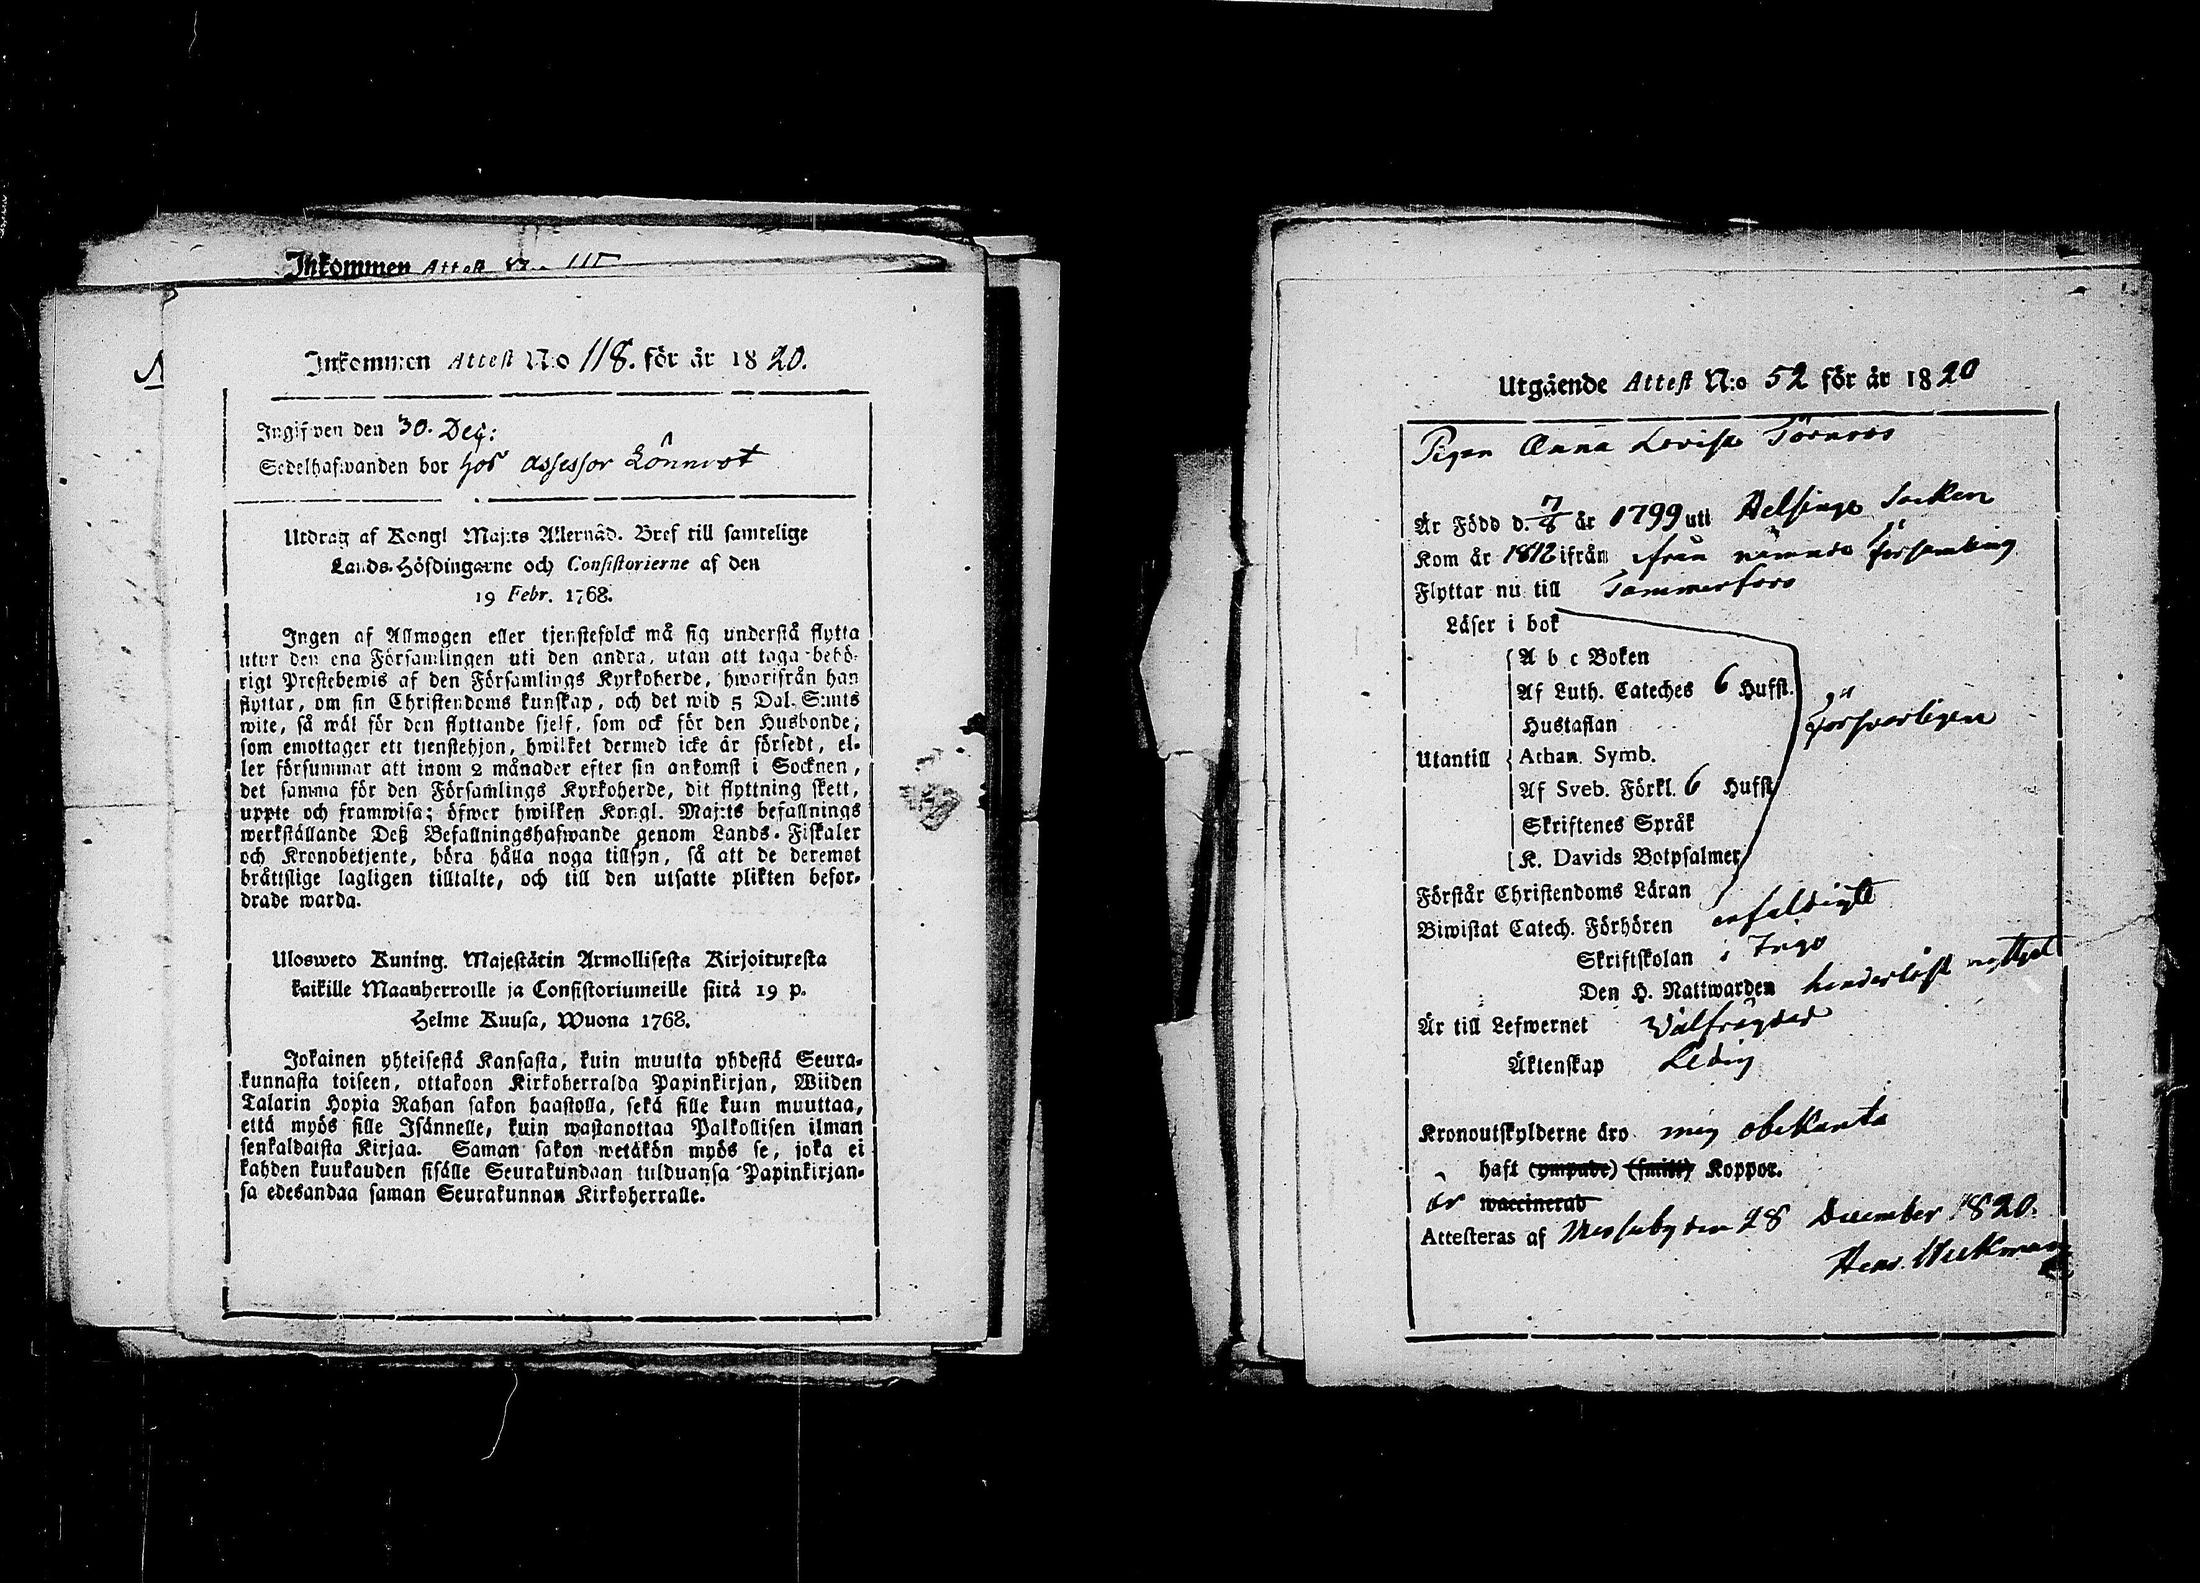 Inkommen Attest N:o 115
Inkommen Attest N:o 118. för år 1820.
Ingifwen den 30. Dec:
Sedelhafwanden bor hos Assessor Lönnrot
Utdrag af Kongl Maj:ts Allernåd. Bref till samtelige
Lands-Höfdingarne och Consistorierne af den
19 Febr. 1768.
Ingen af Allmogen eller tjenstefolck må sig understå flytta
utur den ena Församlingen uti den andra, utan att taga behö-
rigt Prestebewis af den Församlings Kyrkoherde, hwarifrån han
flyttar, om sin Christendoms kunskap, och det wid 5 Dal. S:mts
wite, så wäl för den flyttande sjelf, som ock för den Husbonde,
som emottager ett tjenstehjon, hwilket dermed icke är försedt, el-
ler försummar att inom 2 månader efter sin ankomst i Socknen,
det samma för den Församlings Kyrkoherde, dit flyttning skett,
uppte och framwisa; öfwer hwilken Kongl. Maj:ts befallnings
werkställande Deß Befallningshafwande genom Lands-Fiskaler
och Kronobetjente, böra hålla noga tillsyn, så att de deremot
bråttslige lagligen tilltalte, och till den utsatte plikten befor-
drade warda.
Ulosweto Kuning. Majestätin Armollisesta Kirjoituxesta
kaikille Maanherroille ja Consistoriumeille siitä 19 p.
Helme Kuusa, Wuona 1768.
Jokainen yhteisestä Kansasta, kuin muutta yhdestä Seura-
kunnasta toiseen, ottakoon Kirkoherralda Papinkirjan, Wiiden
Talarin Hopia Rahan sakon haastolla, sekä sille kuin muuttaa,
että myös sille Isännelle, kuin wastanottaa Palkollisen ilman
senkaldaista Kirjaa. Saman sakon wetäkön myös se, joka ei
kahden kuukauden sisälle Seurakundaan tulduansa Papinkirjan-
sa edesandaa saman Seurakunnan Kirkoherralle.
Utgående Attest N:o 52 för år 1820
Pigan Anna Lovisa Törnroos
Är Född d. 7/8 år 1799 uti Helsinge Socken
Kom år 1812 ifrån från nämnde församling
Flyttar nu till Tammerfors
Läser i bok
A b c Boken
Af Luth. Cateches 6 Hufst.
Hustaflan
försvarligen
Utantill Athan. Symb.
Af Sveb. Förkl. 6 Hufst.
Skriftenes Språk
K. Davids Botpsalmer
Förstår Christendoms Läran enfaldigt
Biwistat Catech. Förhören
Skriftskolan i Ingo
Den H. Nattwarden hinderlöst nyttjat
Är till Lefwernet Välfrägdad
Äktenskap Ledig
Kronoutskylderne äro mig obekanta
haft (ympade) (smitt) Koppor.
är waccinerad
Attesteras af Messuby den 28 December 1820.